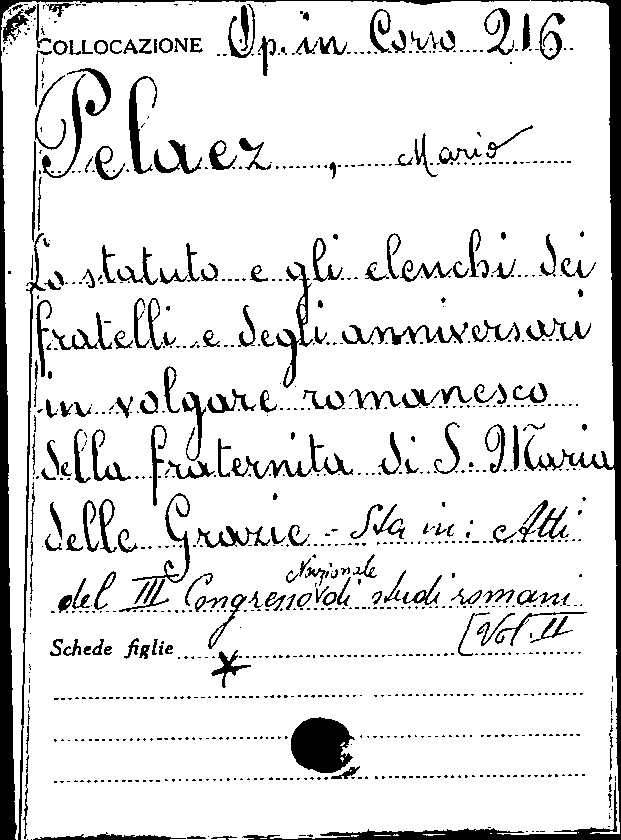 COLLOCAZIONE Op. in Corso 216
Pelaez, Mario
Lo statuto e gli elenchi dei
fratelli e degli anniversari
in volgare romanesco
della fraternita di S. Maria
delle Grazie - Sta in: Atti
del III Congresso Nazionale di studi romani
[Vol. II
Schede figlie
*